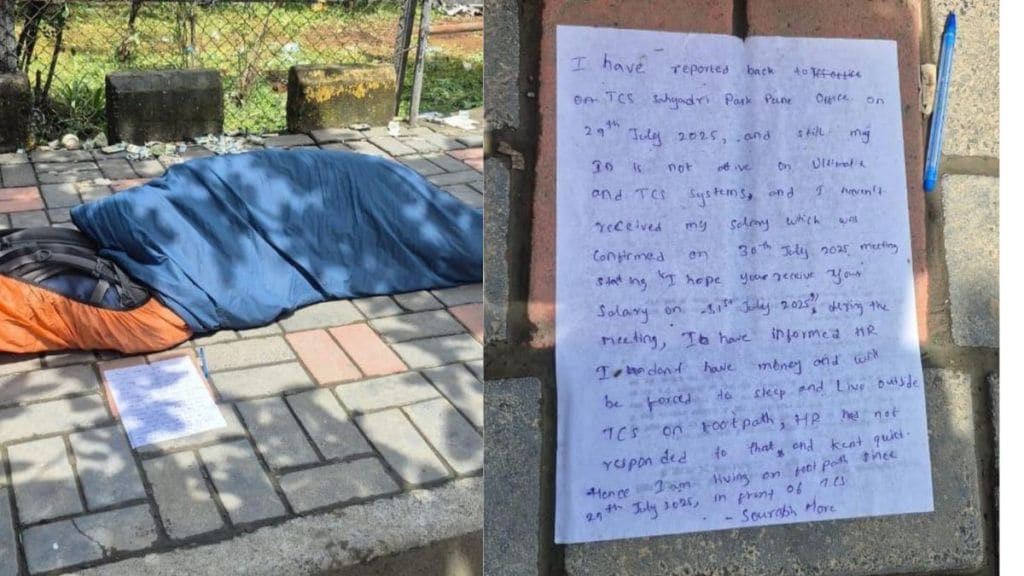 I have reported back to office
on TCS Sahyadri Park Pune Office on
29th July 2025, and still my
ID is not active on Ultimatix
and TCS systems, and I haven't
received my salary which was
confirmed on 30th July 2025 meeting
stating "I hope you receive your
Salary on 31st July 2025", during the
meeting, I have informed HR
I dont have money and will
be forced to sleep and Live outside
TCS on footpath, HR has not
responded to that, and kept quiet.
Hence I am living on footpath since
29th July 2025, in front of TCS
- Sourabh More